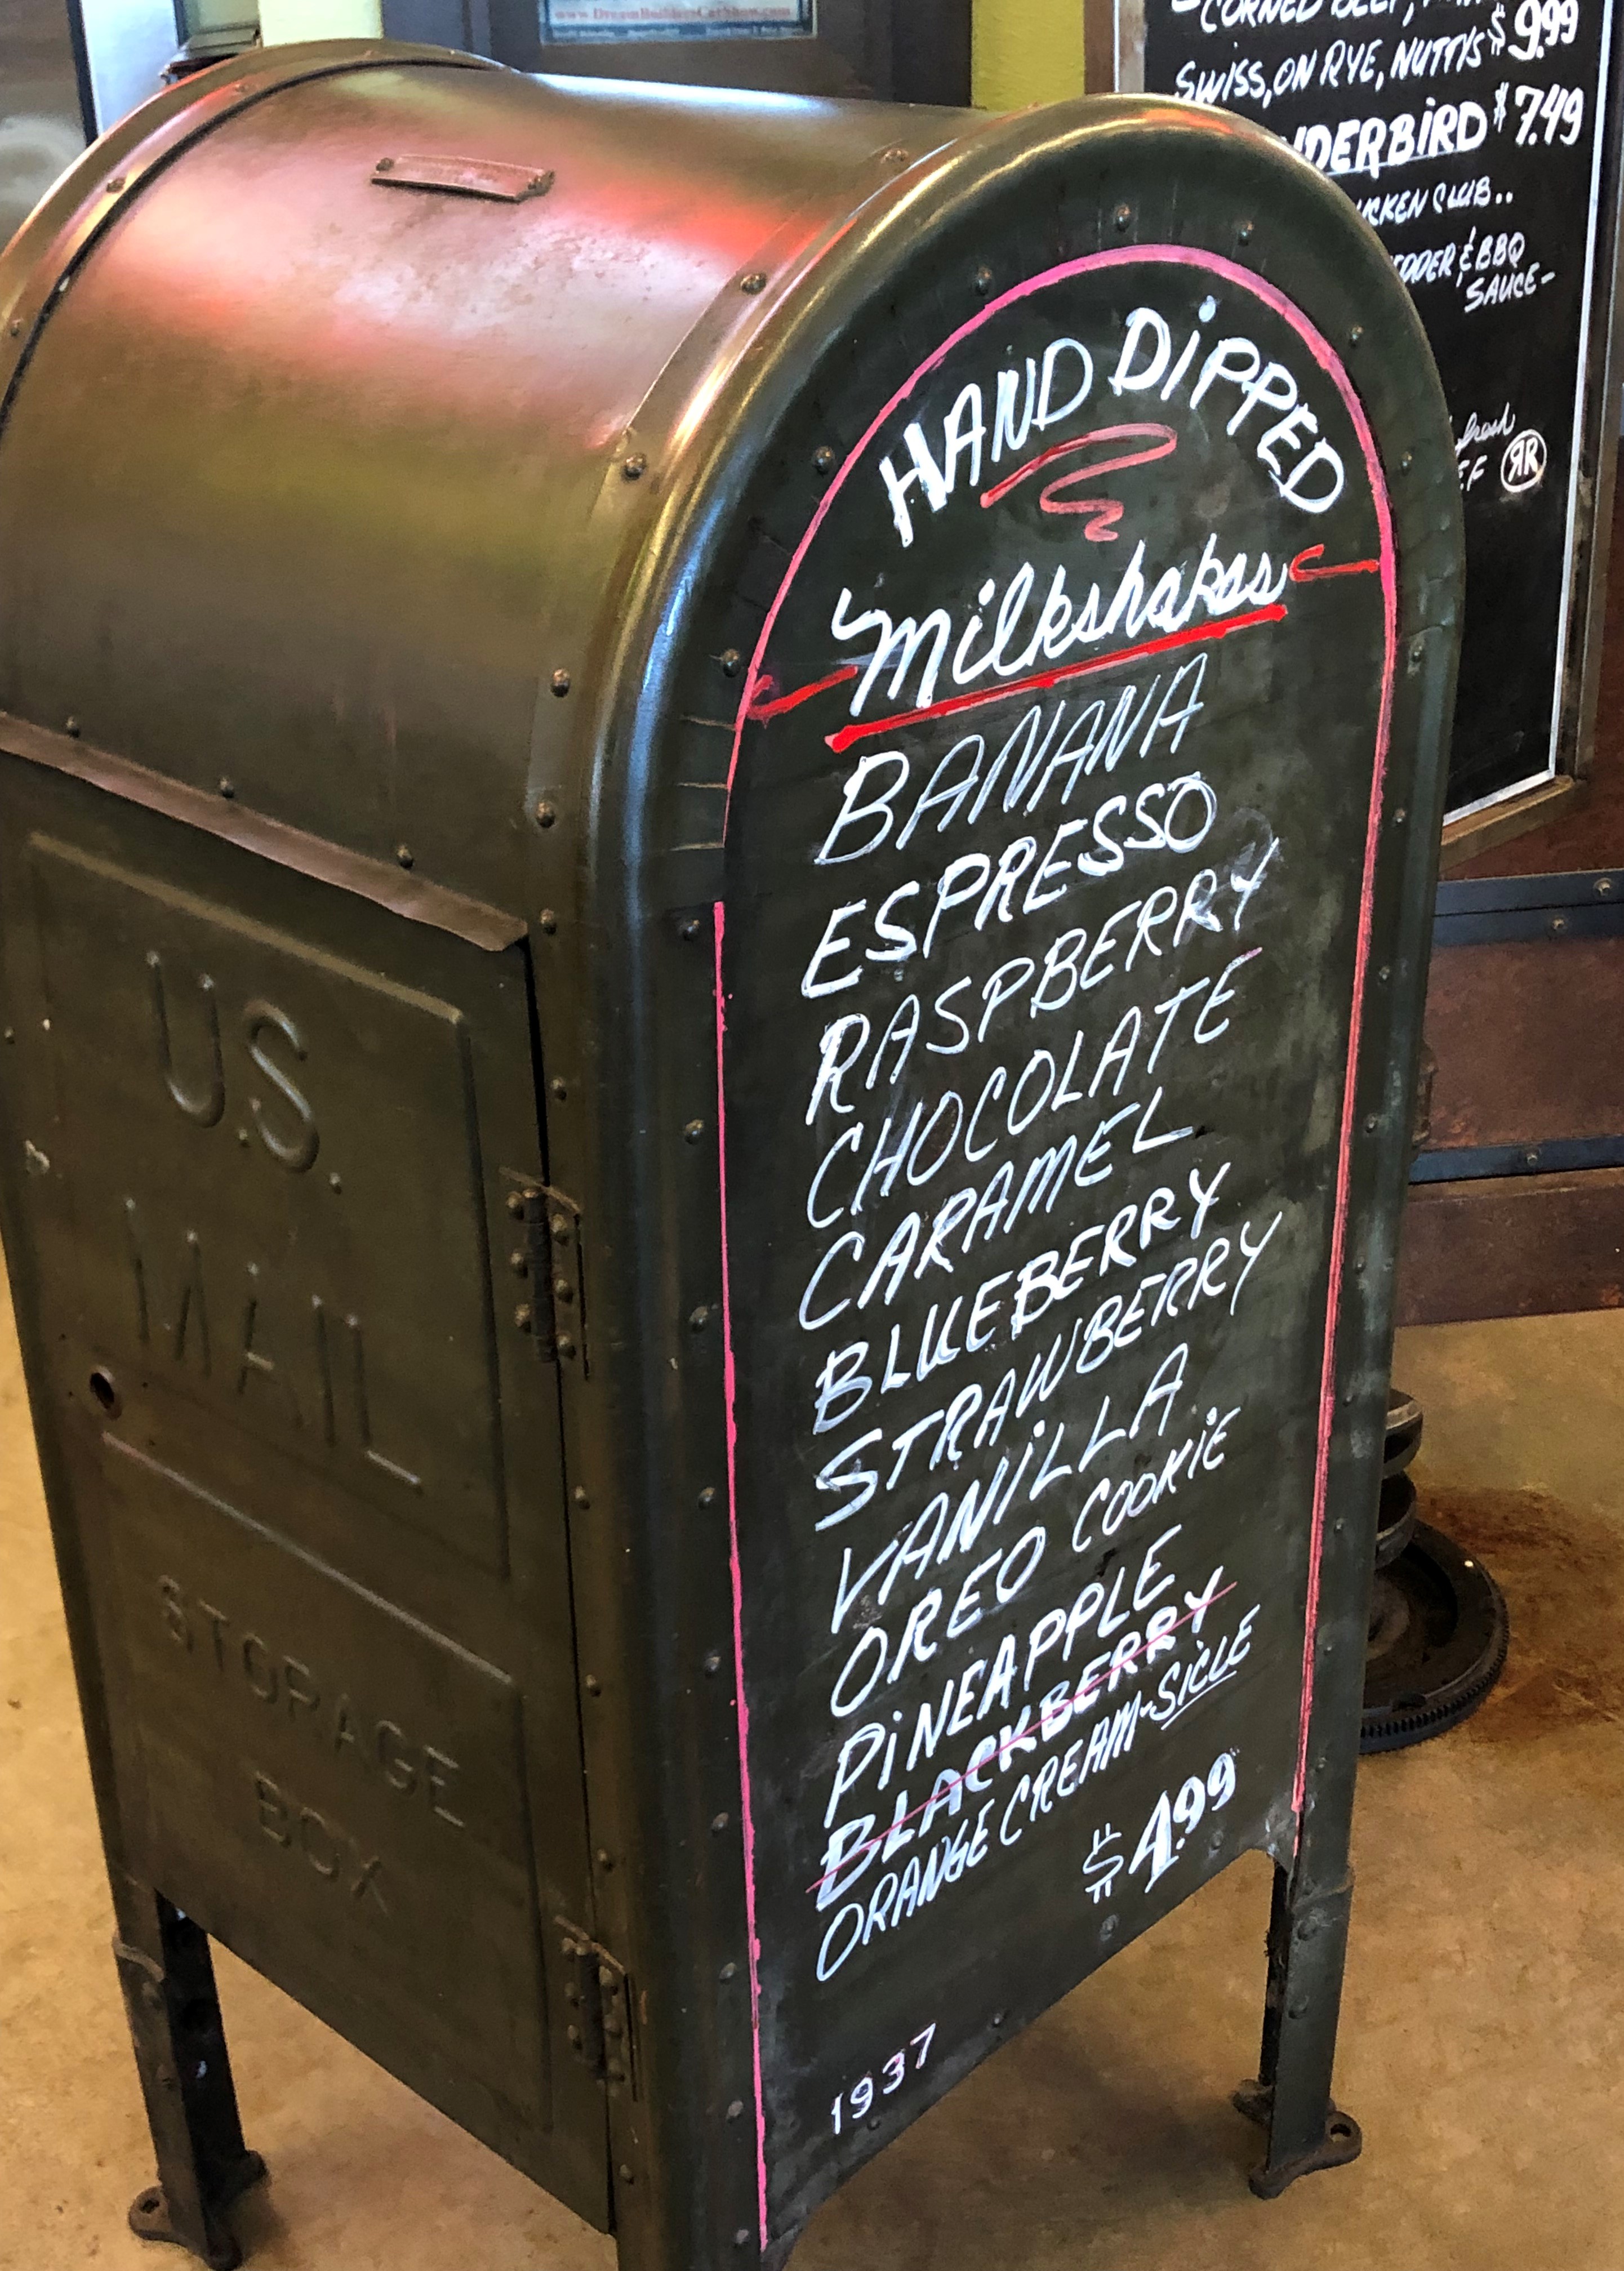 www.DreamBuildersCarShow.com
CORNED BEEF,
SWISS, ON RYE, NUTTYS $9.99
$7.49
CLUB..
& BBQ
SAUCE-
fresh
RR
HAND DiPPED
Milkshakes
BANANA
ESPRESSO
RASPBERRY
CHOCOLATE
CARAMEL
BLUEBERRY
STRAWBERRY
VANiLLA
OREO COOKiE
PiNEAPPLE
BLACKBERRY
ORANGE CREAM-SICLE
$4.99
1937
U.S.
MAIL
STORAGE
BOX